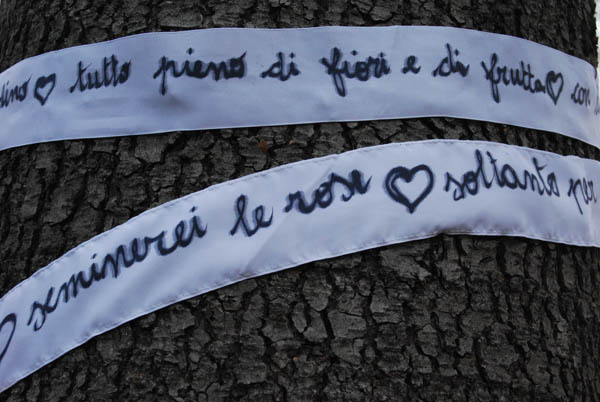 tutto pieno di fiori e di frutta con
seminerei le rose soltanto per